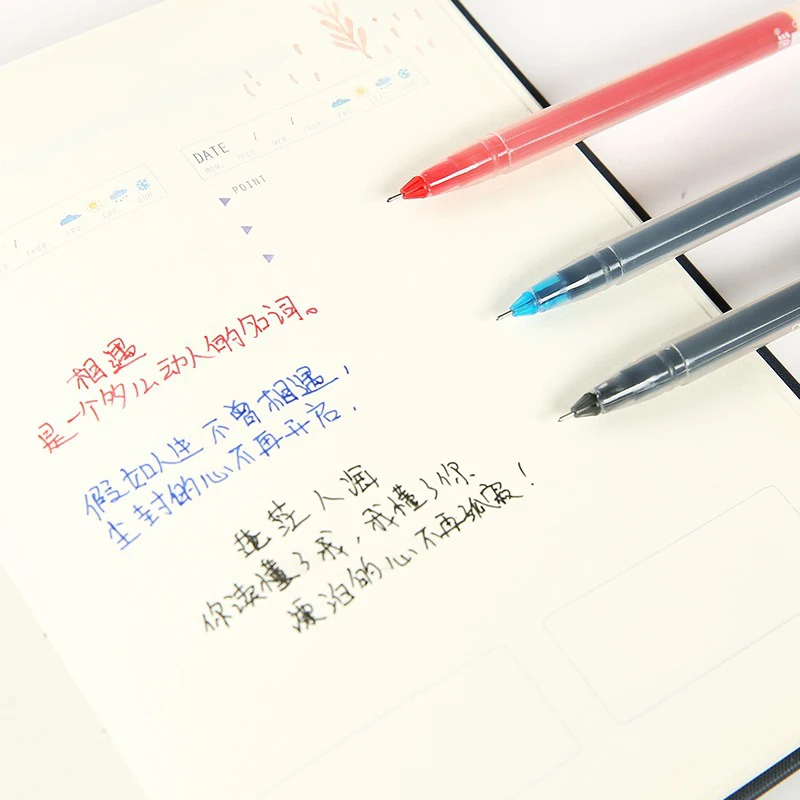 DATE / /
MON. TUES. WED. THUR. FRI. SAT. SUN.
POINT
/ /
THUR. FRI. SAT. SUN.
相遇
是一个多么动人的名词。
假如人生不曾相遇，
尘封的心不再开启.
茫茫人海
你读懂了我，我懂了你、
漂泊的心不再孤寂！